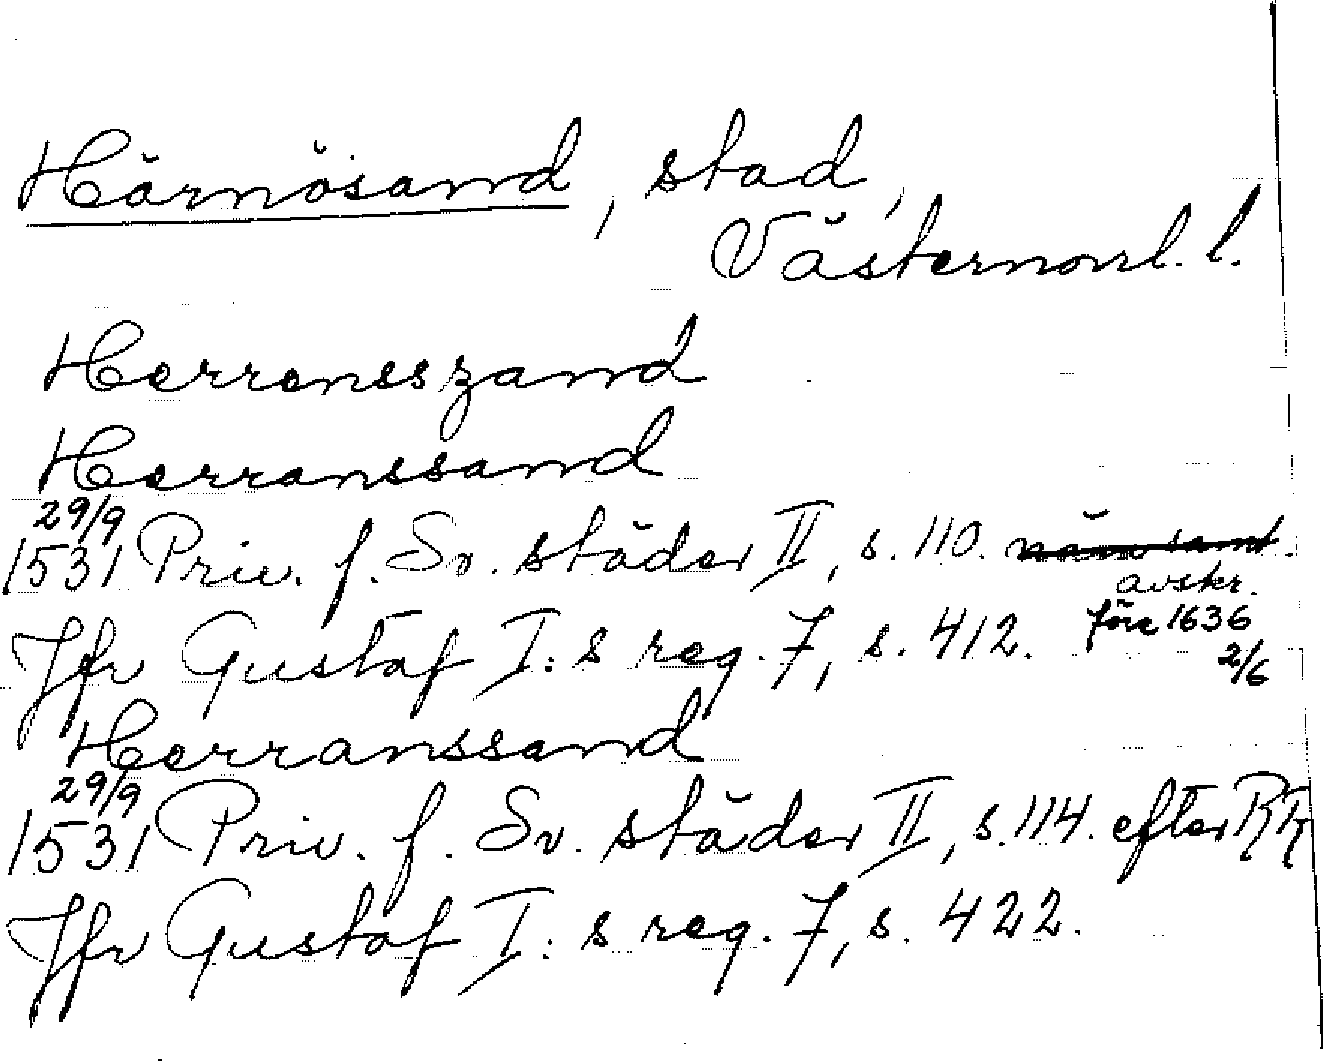 Härnösand, stad,
Västernorrl. l.
Herrenesszand
Herranssand
29/9
1531 Priv. f. Sv. städer II, s. 110.
avskr.
före 1636
Jfr Gustaf I:s reg. 7, s. 412.
2/6
Herranssand
29/9
1531 Priv. f. Sv. städer II, s. 114. efter RR
Jfr Gustaf I:s reg. 7, s. 422.